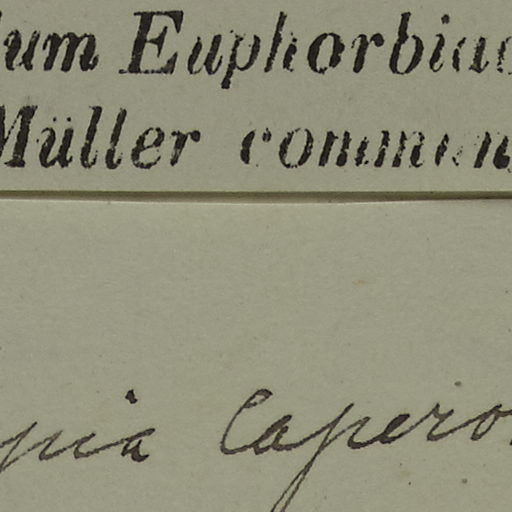 lum Euphorbiac
Müller commun
pia Capero